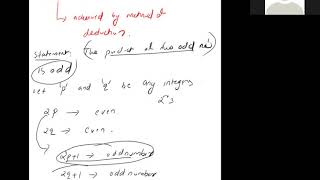 ↳ achieved by method of
deduction.
statement (The product of two odd no's
is odd
let 'p' and 'q' be any integers
2 3
2p → even
2q → even.
2p+1 → odd number
2q+1 → odd number